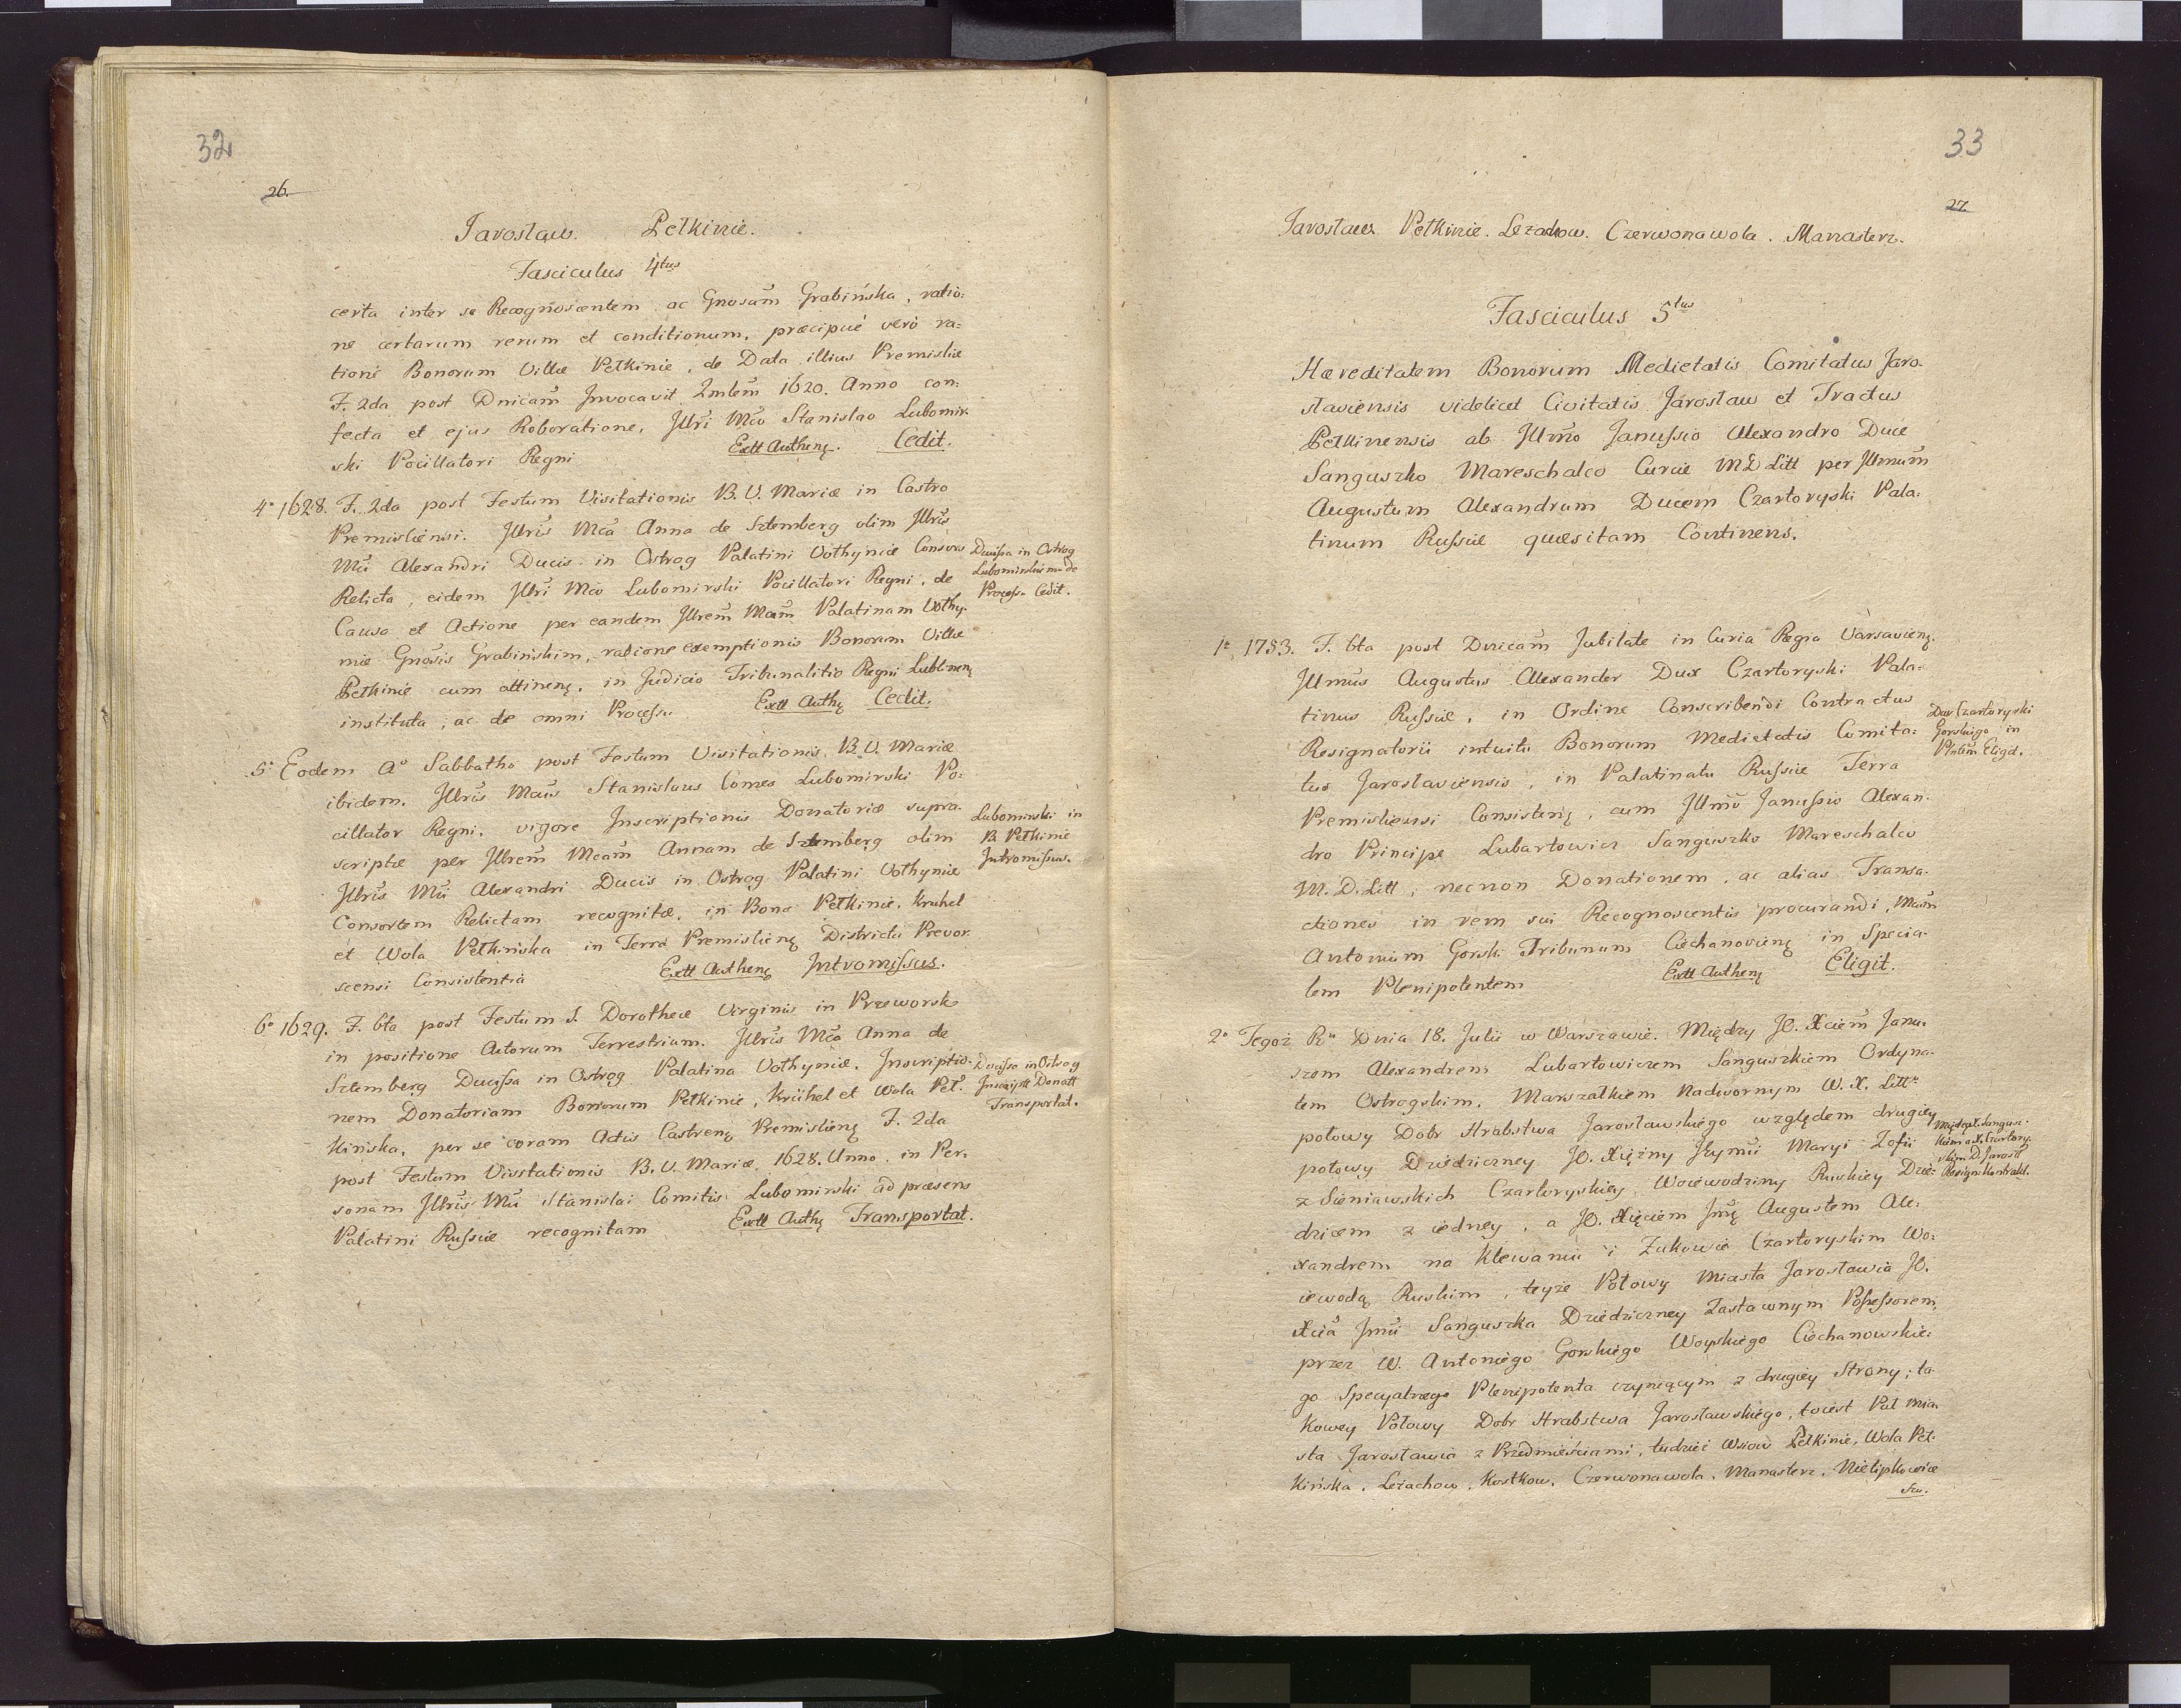 32
26.
Jarosław. Pełkinie.
Fasciculus 4tus
certa inter se Recognoscentem ac Gnosam̄ Grabińska, ratio=
ne certarum rerum et conditionum, præcipuè verò ra=
tione Bonorum Villæ Pełkinie, de Data illius Premisliæ
F. 2da post Dnicam̄ Invocavit 1620. Anno con=
fecta et ejus Roboratione, Illri Mco Stanislao Lubomir=
ski Pocillatori Regni Extt Authenꝫ. Cedit.
4º 1628. F. 2da post Festum Visitationis B. V. Mariæ in Castro
Premisliensi. Illris Mca Anna de Sztemberg olim Illris
Mci Alexandri Ducis in Ostrog Palatini Volhyniæ Consors
Relicta, eidem Illri Mco Lubomirski Pocillatori Regni, de
Causa et Actione per eandem Illrem̄ Mcam̄ Palatinam Volhy=
niæ Gnosis Grabińskim, ratione exemptionis Bonorum Villæ
Pełkinie cum attinenꝫ, in Judicio Tribunalitio Regni Lublinenꝫ
instituta, ac de omni Processu Extt Authꝫ Cedit.
Ducissa in Ostrog
Lubomirskiem de
Process. Cedit.
5º Eodem Aº Sabbatho post Festum Visitationis B. V. Mariæ
ibidem. Illris Mcus Stanislaus Comes Lubomirski Po=
cillator Regni, vigore Inscriptionis Donatoriæ supra=
scriptæ per Illrem̄ Mcam̄ Annam de Sztemberg olim
Illris Mci Alexandri Ducis in Ostrog Palatini Volhyniæ
Consortem Relictam recognitæ, in Bona Pełkinie, Kruhel
et Wola Pełkińska in Terra Premislienꝫ Districtu Prevor=
scensi Consistentia Extt Authenꝫ Intromissus.
Lubomirski in
B. Pełkinie
Intromissus.
6º 1629. F. 6ta post Festum S. Dorotheæ Virginis in Przeworsk
in positione Actorum Terrestrium. Illris Mca Anna de
Sztemberg Ducissa in Ostrog Palatina Volhyniæ, Inscriptio=
nem Donatoriam Bonorum Pełkinie, Krühel et Wola Peł=
kińska, per se coram Actis Castrenꝫ Premislienꝫ F. 2da
post Festum Visitationis B. V. Mariæ 1628. Anno in Per=
sonam Illris Mci Stanislai Comitis Lubomirski ad præsens
Palatini Russiæ recognitam Extt Authꝫ Transportat.
Ducissa in Ostrog
Inscript Donatt
Transportat.
33
27.
Jarosław Pełkinie. Leżachow. Czerwonawola. Manasterz.
Fasciculus 5tus
Hæreditatem Bonorum Medietatis Comitatus Jaro=
slaviensis videlicet Civitatis Jarosław et Tractus
Pełkinensis ab Illmo Janussio Alexandro Duce
Sanguszko Mareschalco Curiæ MD Litt per Illmum̄
Augustum Alexandrum Ducem Czartoryski Pala=
tinum Russiæ quæsitam Continens.
1º 1753. F. 6ta post Dnicam̄ Jubilate in Curia Regia Varsavienꝫ
Illmus Augustus Alexander Dux Czartoryski Pala=
tinus Russiæ, in Ordine Conscribendi Contractus
Resignatorii intuitu Bonorum Medietatis Comita=
tus Jaroslaviensis, in Palatinatu Russiæ Terra
Premisliensi Consistenꝫ, cum Illmo Janussio Alexan=
dro Principe Lubartowicz Sanguszko Mareschalco
M. D. Litt, necnon Donationem, ac alias Transa=
ctiones in rem sui Recognoscentis procurandi, Mcum̄
Antonium Gorski Tribunum Ciechanovienꝫ in Specia=
lem Plenipotentem Extt Authenꝫ Eligit.
Dux Czartoryski
Gorskiego in
Plntem̄ Eligit.
2º Tegoż Rº Dnia 18. Julii w Warszawie. Między JO. Xciem̄ Janu=
szem Alexandrem Lubartowiczem Sanguszkiem Ordyna=
tem Ostrogskim, Marszałkiem Nadwornym W. X. Litto
połowy Dobr Hrabstwa Jarosławskiego względem drugiey
połowy Dziedziczney JO. Xiężny Jeymci Maryi Zofii
z Sieniawskich Czartoryskiey Woiewodziny Ruskiey Dzie=
dzicem z iedney, a JO. Xięciem Jmę Augustem Ale=
xandrem na Klewaniu i Zukowie Czartoryskim Wo=
iewodą Ruskim, teyże Połowy Miasta Jarosławia JO.
Xcia Jmci Sanguszka Dziedziczney Zastawnym Possessorem,
przez W. Antoniego Gorskiego Woyskiego Ciechanowskie=
go Specyalnego Plenipotenta czyniącym z drugiey Strony; ta=
kowey Połowy Dobr Hrabstwa Jarosławskiego, toiest Puł mia=
sta Jarosławia z Przedmieściami, tudzież Wsiow Pełkinie, Wola Peł=
kińska, Leżachow, Kostkow, Czerwonawola, Manasterz, Nielipkowice
Szu.
Między X. Sangusz=
kiem a X. Czartory=
skim D. Jarosł
Resign: Kontrakt.